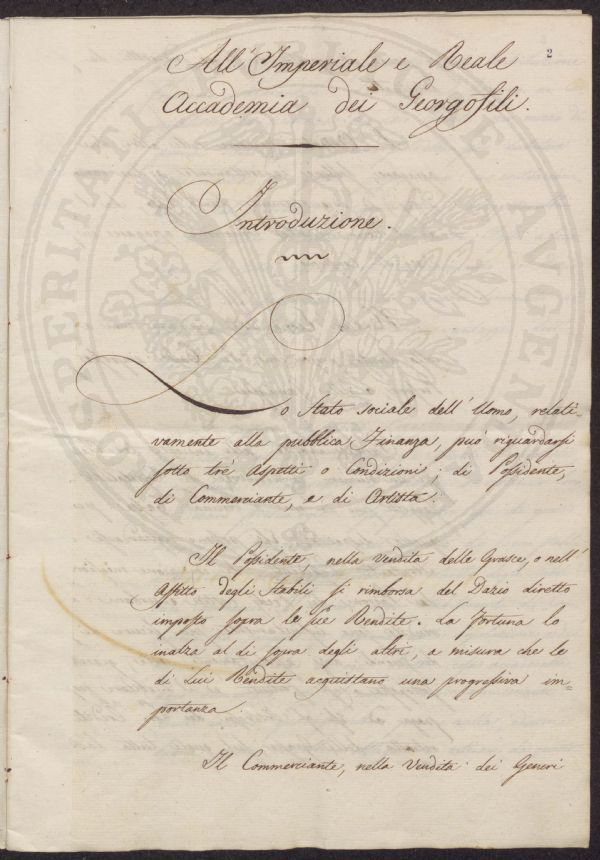 2
All' Imperiale e Reale
Accademia dei Georgofili.
Introduzione.
Lo Stato sociale dell' Uomo, relati-
vamente alla pubblica Finanza, può riguardarsi
sotto trè Aspetti o Condizioni; di Possidente,
di Commerciante, e di Artista.
Il Possidente, nella vendita delle Grasce, o nell'
Affitto degli Stabili si rimborsa del Dazio diretto
imposto sopra le sue Rendite. La fortuna lo
inalza al di sopra degli altri, a misura che le
di Lui Rendite acquistano una progressiva im=
portanza.
Il Commerciante, nella Vendita dei Generi
PROSPERITATI PUBLICAE AUGENDAE